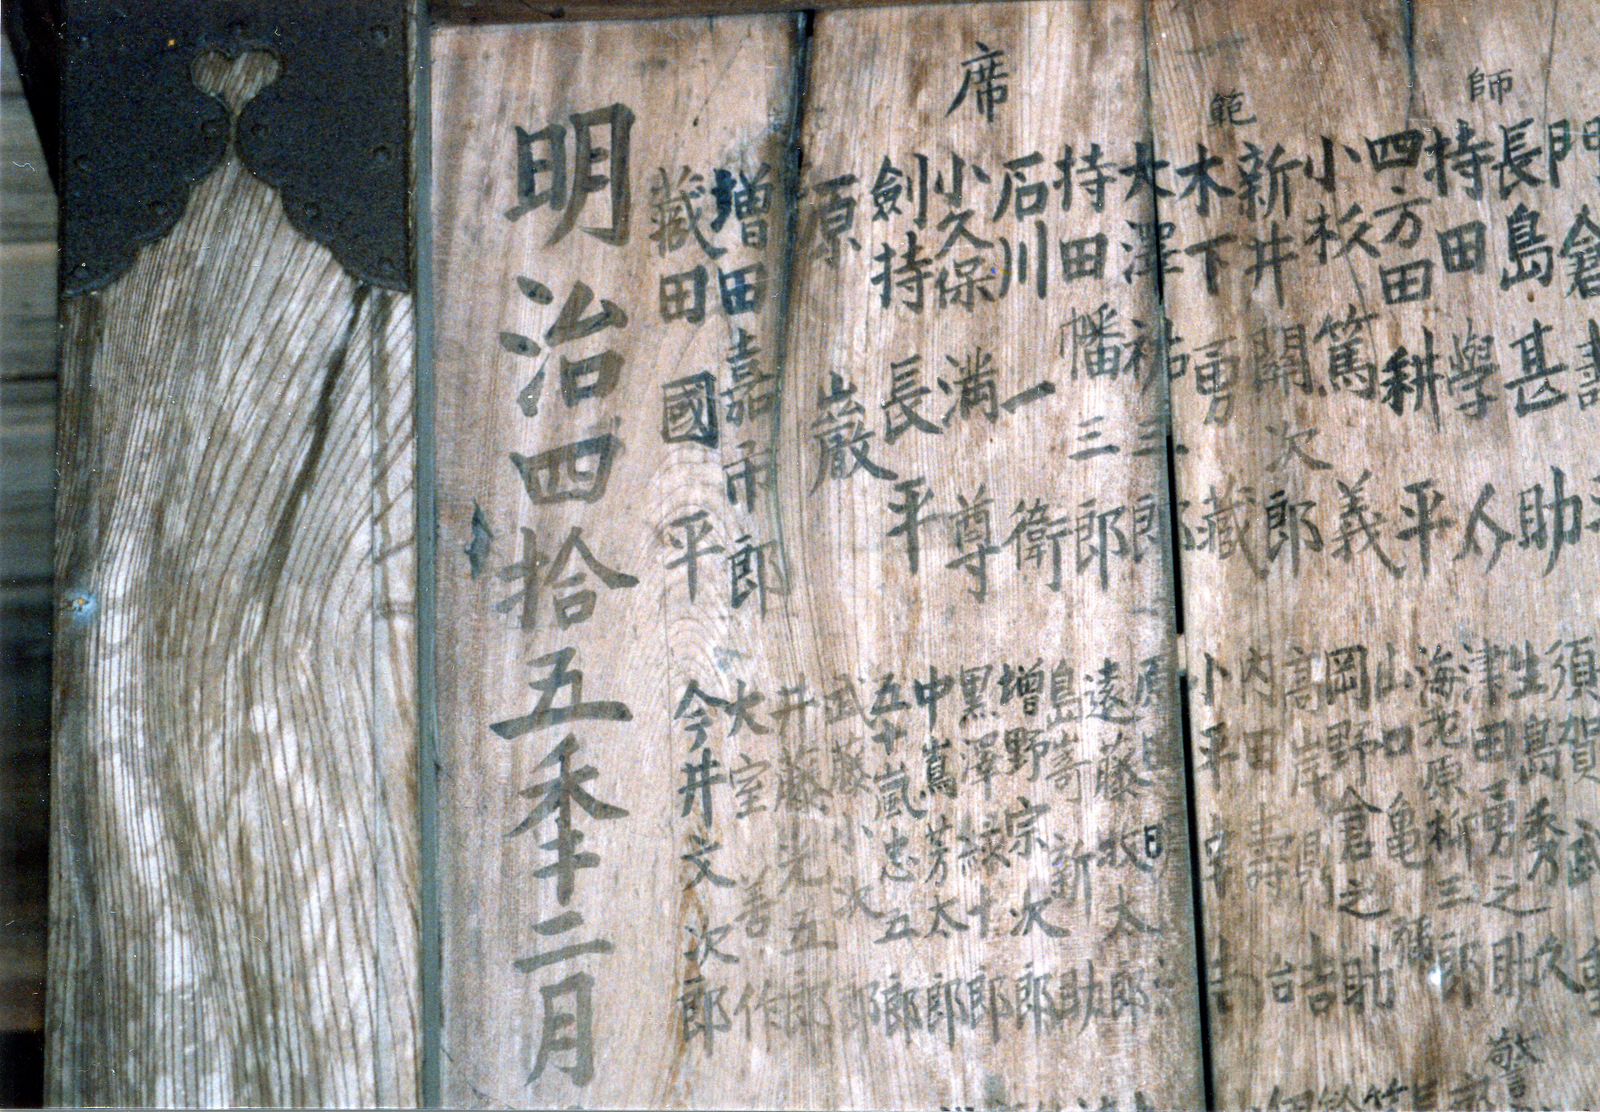 師範席
長島甚助
持田學人
四方田耕平
小杉篤義
新井開次郎
木下勇藏
大澤祐三郎
持田幡三郎
石川一衛
小久保満尊
劍持長平
原巌
増田嘉市郎
藏田國平
須賀
生島秀久
津田勇之助
海老原柳三郎
山口亀
岡野倉之助
高岸
内田壽治
小平
遠藤牧太郎
島嵜新助
増野宗次郎
黒澤 十郎
中嶌芳太郎
五十嵐忠五郎
武藤 次郎
井藤光五郎
大室善作
今井文次郎
明治四拾五秊二月